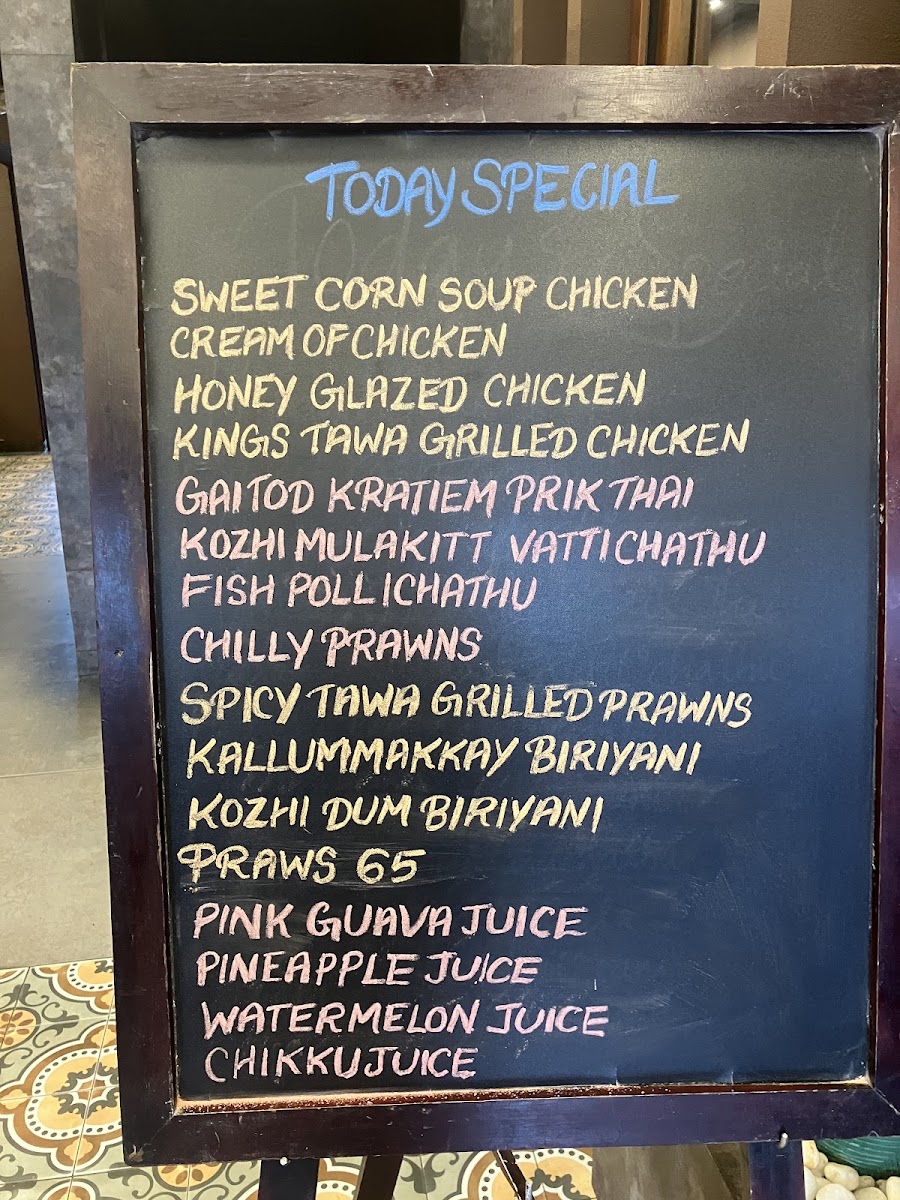 TODAY SPECIAL
SWEET CORN SOUP CHICKEN
CREAM OF CHICKEN
HONEY GLAZED CHICKEN
KINGS TAWA GRILLED CHICKEN
GAI TOD KRATIEM PRIK THAI
KOZHI MULAKITT VATTICHATHU
FISH POLLICHATHU
CHILLY PRAWNS
SPICY TAWA GRILLED PRAWNS
KALLUMMAKKAY BIRIYANI
KOZHI DUM BIRIYANI
PRAWS 65
PINK GUAVA JUICE
PINEAPPLE JUICE
WATERMELON JUICE
CHIKKU JUICE